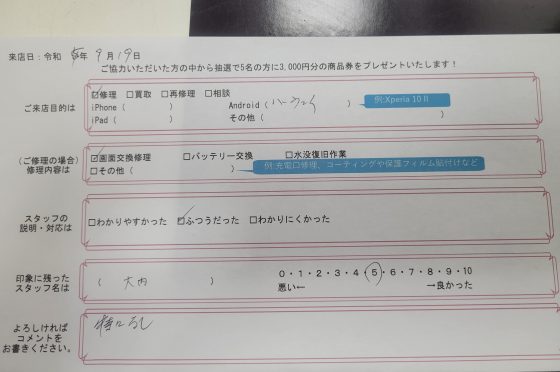 来店日：令和 5年 9月 19日
ご協力いただいた方の中から抽選で5名の方に3,000円分の商品券をプレゼントいたします！
ご来店目的は
☑修理 □買取 □再修理 □相談
iPhone（ ） Android（ ） 例:Xperia 10 II
iPad（ ） その他（ ）
（ご修理の場合）
修理内容は
☑画面交換修理 □バッテリー交換 □水没復旧作業
□その他（ ） 例:充電口修理、コーティングや保護フィルム貼付けなど
スタッフの
説明・対応は
□わかりやすかった ☑ふつうだった □わかりにくかった
印象に残った
スタッフ名は
（ 大内 ） 0・1・2・3・4・5・6・7・8・9・10
悪い← →良かった
よろしければ
コメントを
お書きください。
特になし